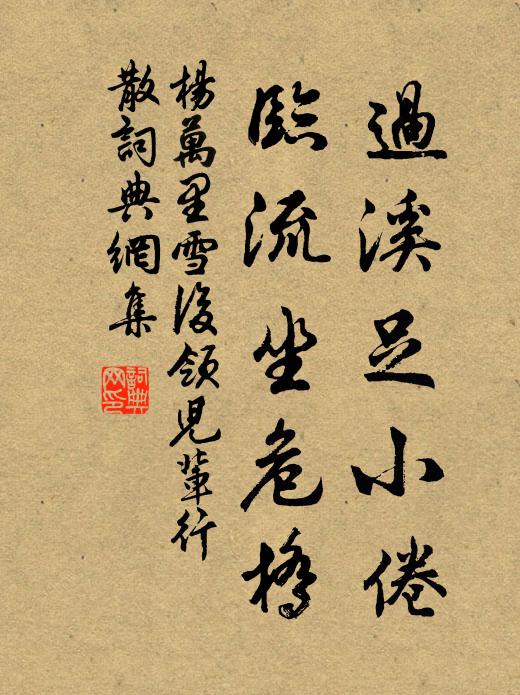 過溪足小倦
臨流坐危橋
楊萬里雪後領兒輩行
散詞典網集
詞典
网印